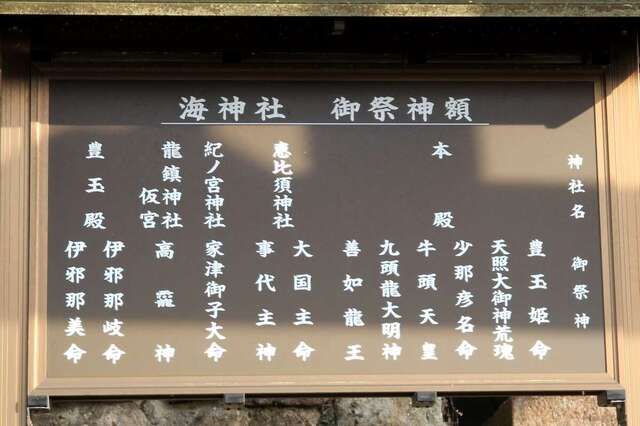 海神社 御祭神額
神社名 御祭神
本殿
豊玉姫命
天照大御神荒魂
少那彦名命
牛頭天皇
九頭龍大明神
善如龍王
恵比須神社
大国主命
事代主神
紀ノ宮神社 家津御子大命
龍鎮神社 仮宮
高龗神
豊玉殿
伊邪那岐命
伊邪那美命